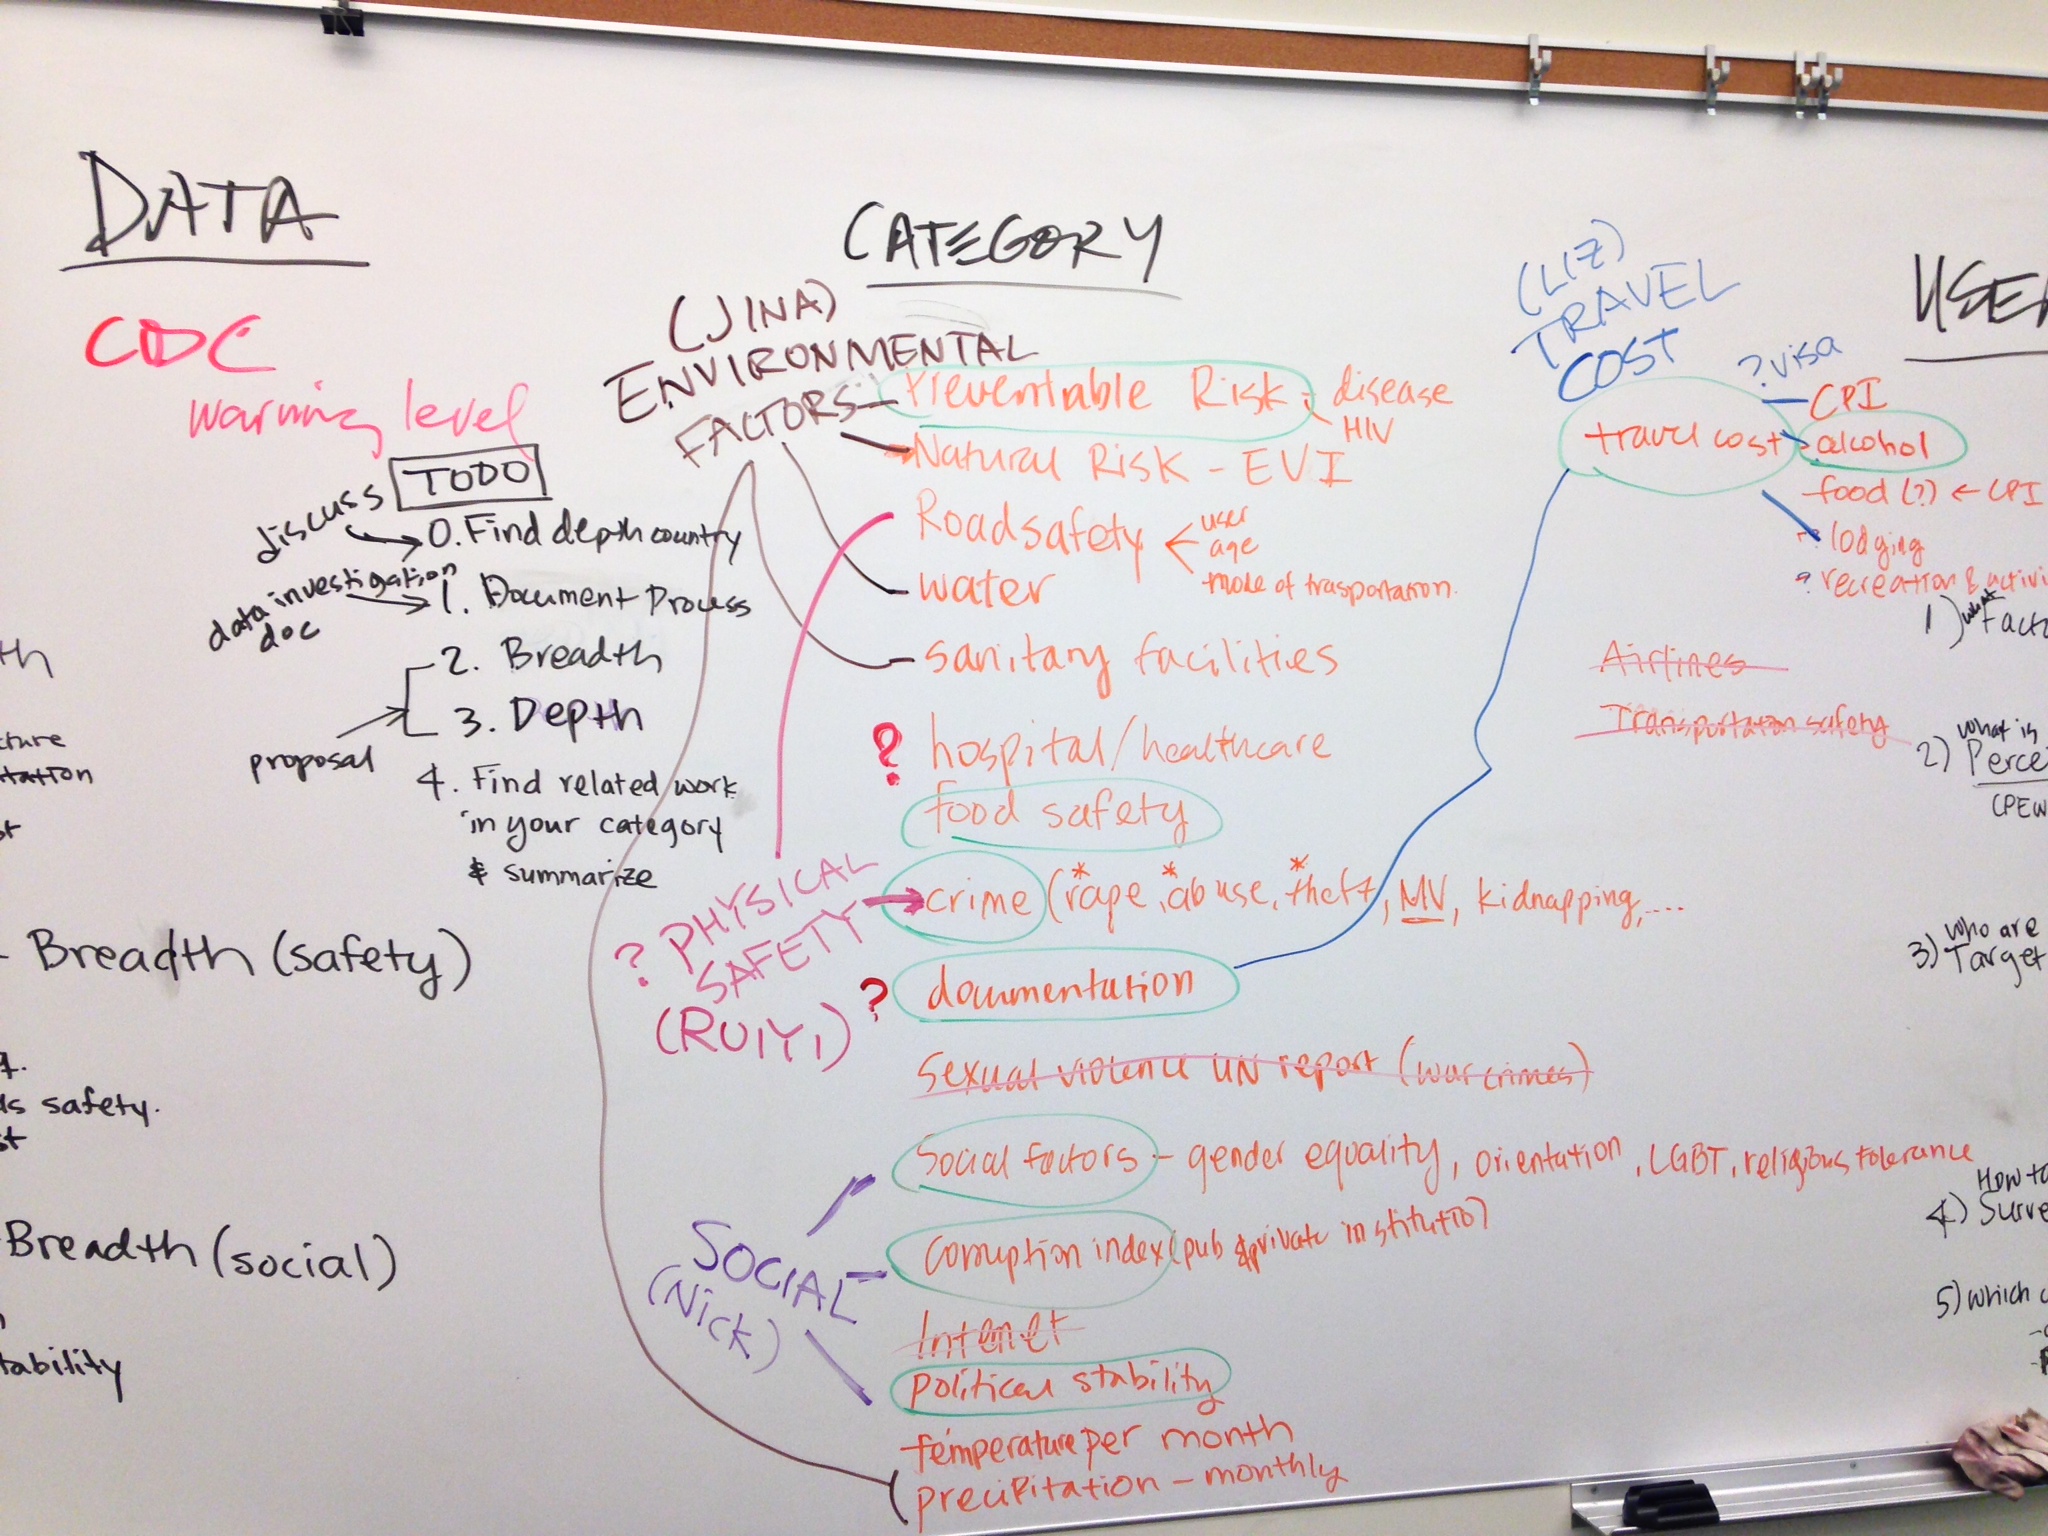 DATA
CDC
warning level
TODO
discuss
0. Find depth country
data investigation doc
1. Document Process
2. Breadth
3. Depth
proposal
4. Find related work
in your category
& summarize
th
cture
tation
st
- Breadth (safety)
safety.
st
Breadth (social)
tability
CATEGORY
(JINA)
ENVIRONMENTAL
FACTORS
Preventable Risk - disease
HIV
Natural Risk - EVI
Roadsafety
user
age
mode of trasportation.
water
sanitary facilities
? hospital/healthcare
food safety
? PHYSICAL
SAFETY
(RUIYI)
crime (*rape, *abuse, *theft, MV, kidnapping, ....
? documentation
Sexual violence UN report (war crimes)
Social factors - gender equality, orientation, LGBT, religious tolerance
SOCIAL
(Nick)
Corruption index (pub & private institutio)
Internet
political stability
temperature per month
precipitation - monthly
(LIZ)
TRAVEL
COST
? visa
travel cost
CPI
alcohol
food (?) ← CPI
lodging
? recreation & activi
Airlines
Transportation safety
USE
1) what Facto
2) what is
Perce
(PEW
3) who are
Target
4) How to
Surve
5) which